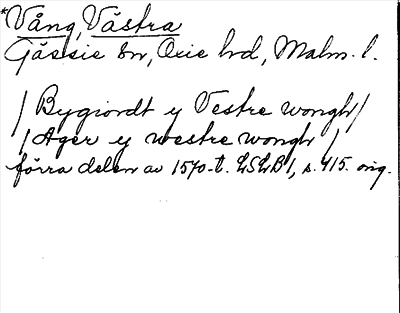 *Vång, Västra
Gässie sn, Oxie hrd, Malm. l.
/ Bygiordt y Vestre wongh /
/ Ager y westre wongh /
förra delen av 1570-t. LSLB I, s. 415. orig.